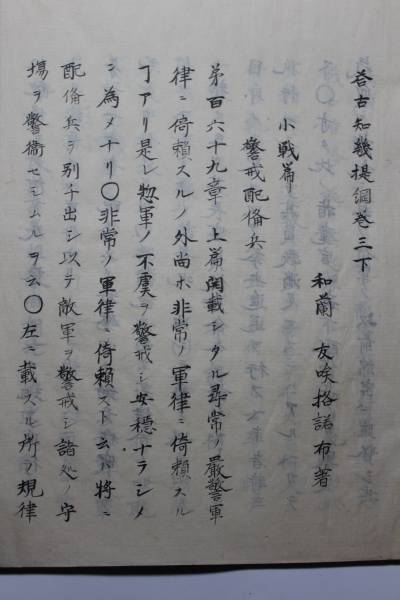 荅古知幾提綱巻三下
和蘭 友唉格諾布著
小戦篇
警戒配備兵
第百六十九章 上篇開載シタル尋常ノ嚴警軍
律ニ倚頼スルノ外尚ホ非常ノ軍律ニ倚頼スル
丁アリ是レ惣軍ノ不虞ヲ警戒シ安穏ナラシメ
ン為メナリ〇非常ノ軍律ニ倚頼スト云ハ将ニ
配備兵ヲ別チ出シ以テ敵軍ヲ警戒シ諸処ノ守
場ヲ警衞セシムルヲ云〇左ニ載スル所ノ規律